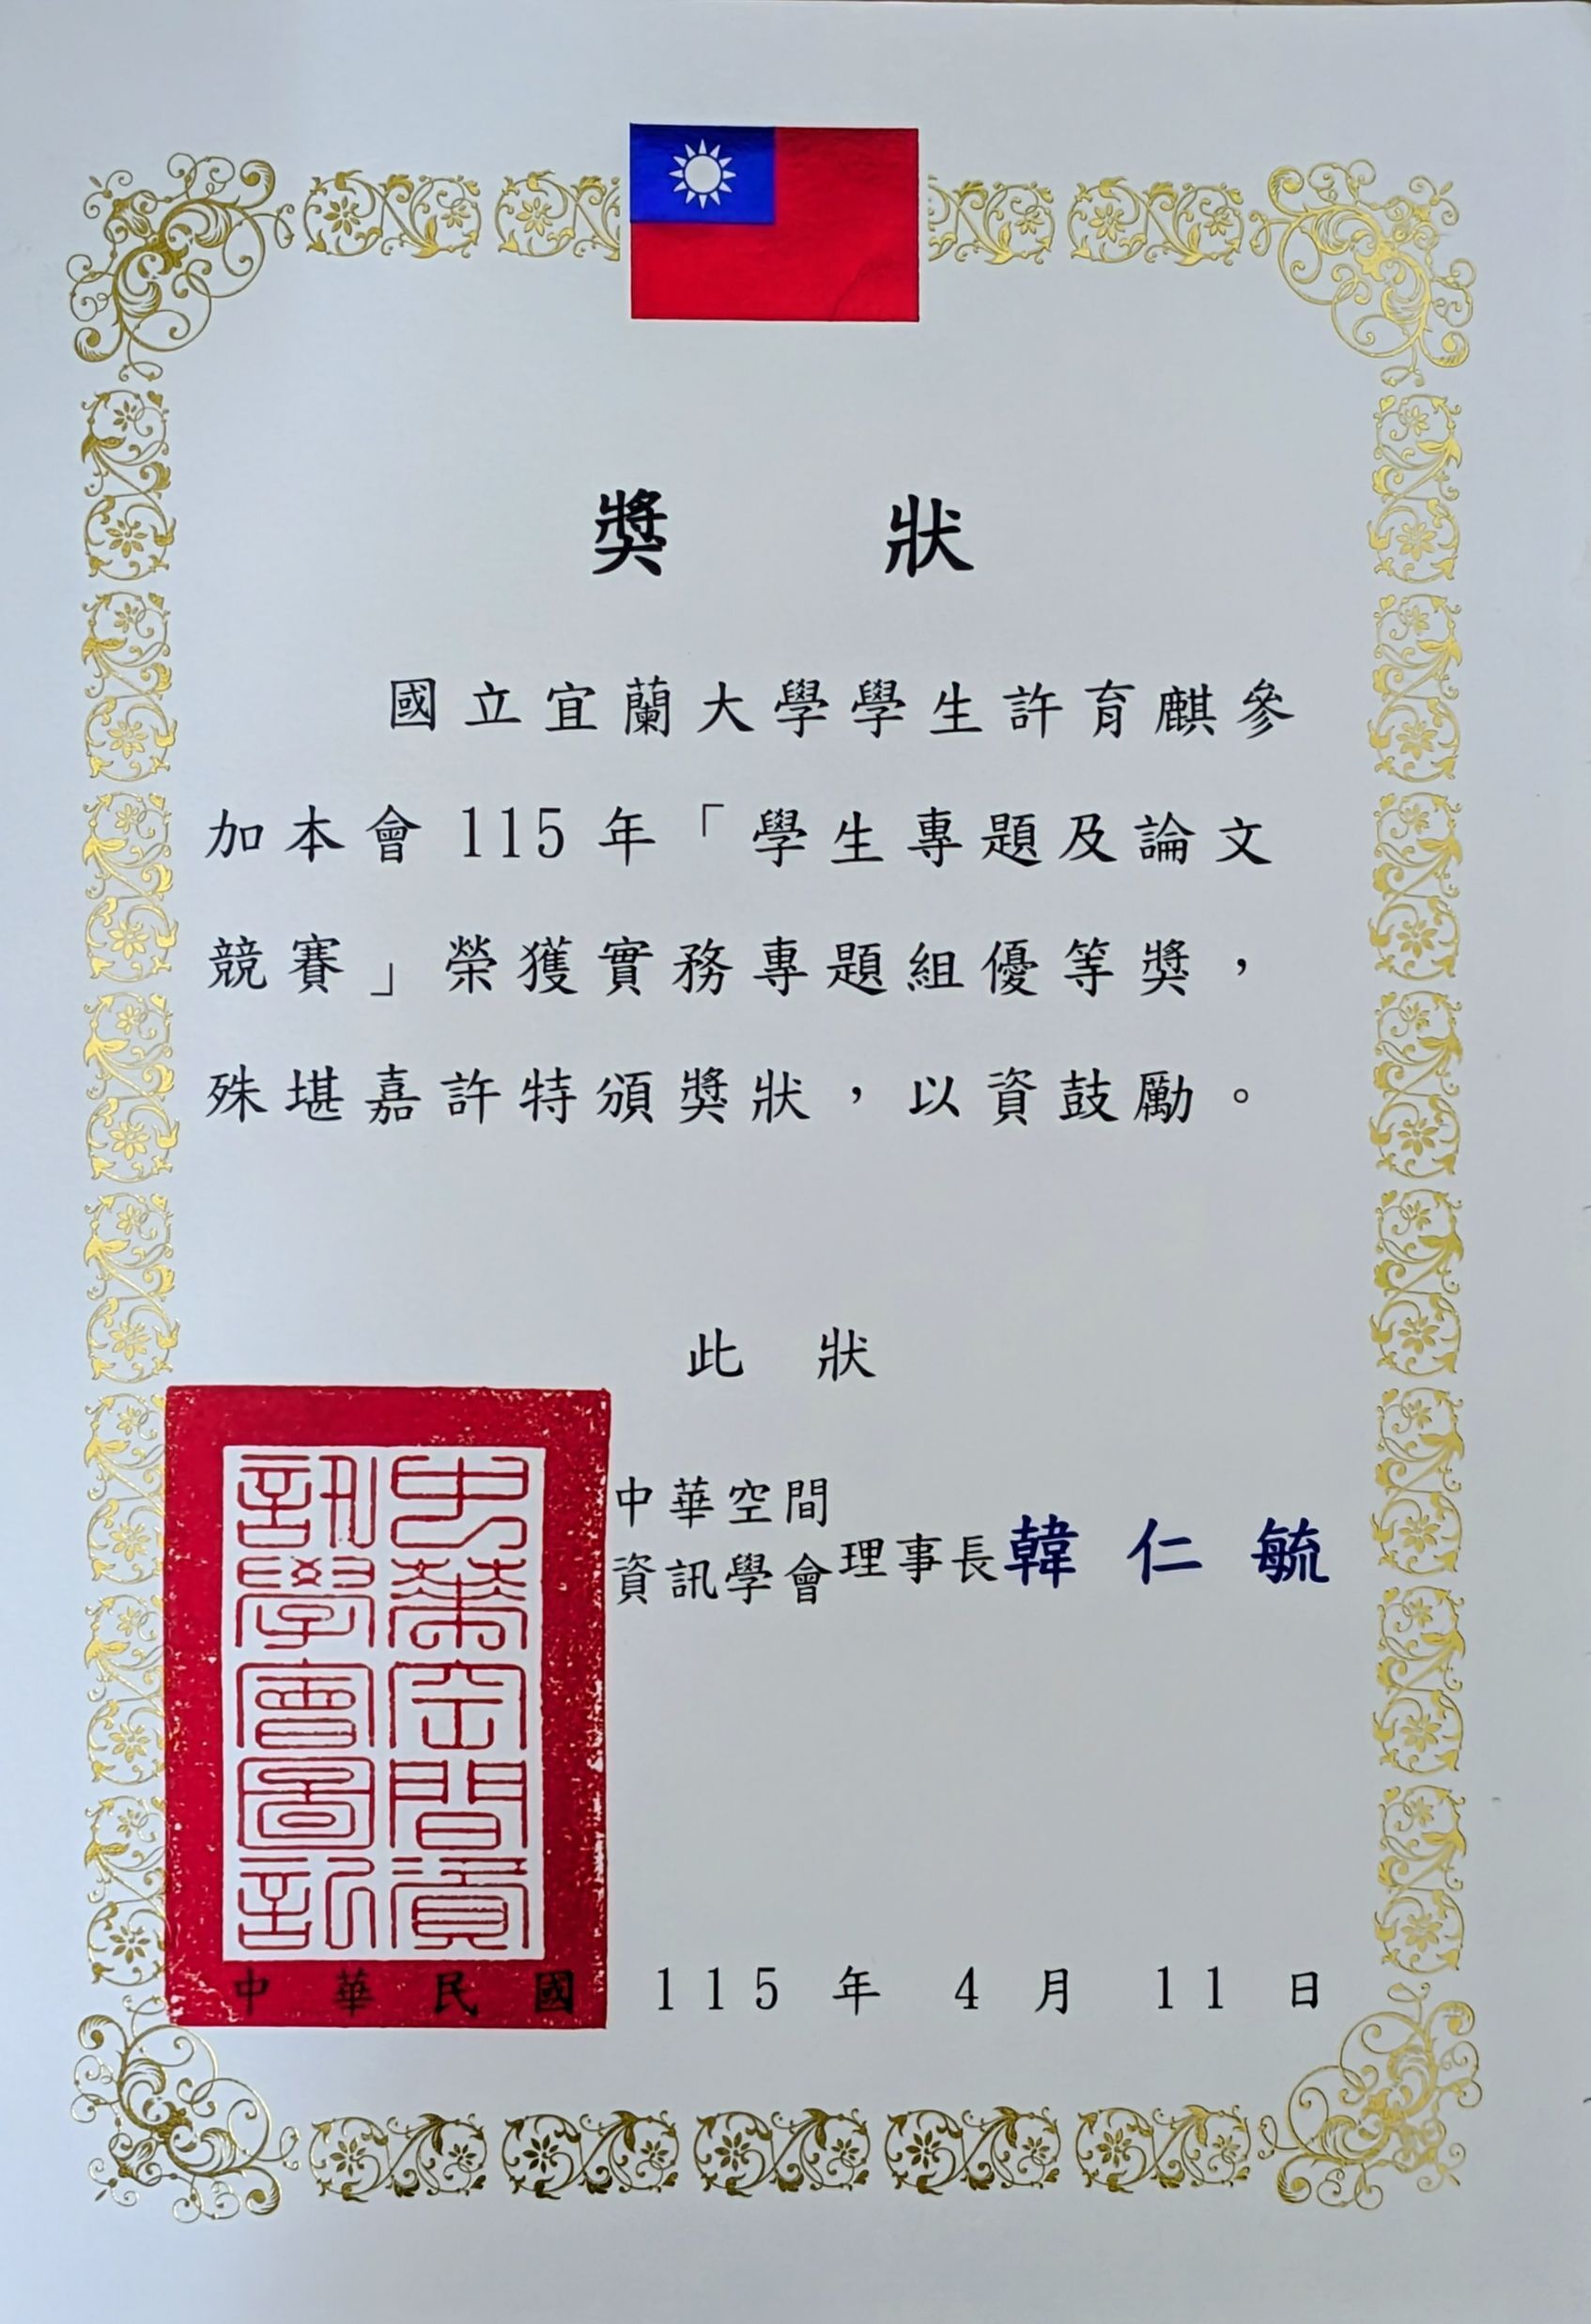 獎狀
國立宜蘭大學學生許育麒參
加本會115年「學生專題及論文
競賽」榮獲實務專題組優等獎，
殊堪嘉許特頒獎狀，以資鼓勵。
此狀
中華空間
資訊學會理事長韓仁毓
中華空間資
訊學會圖記
中華民國 115 年 4 月 11 日